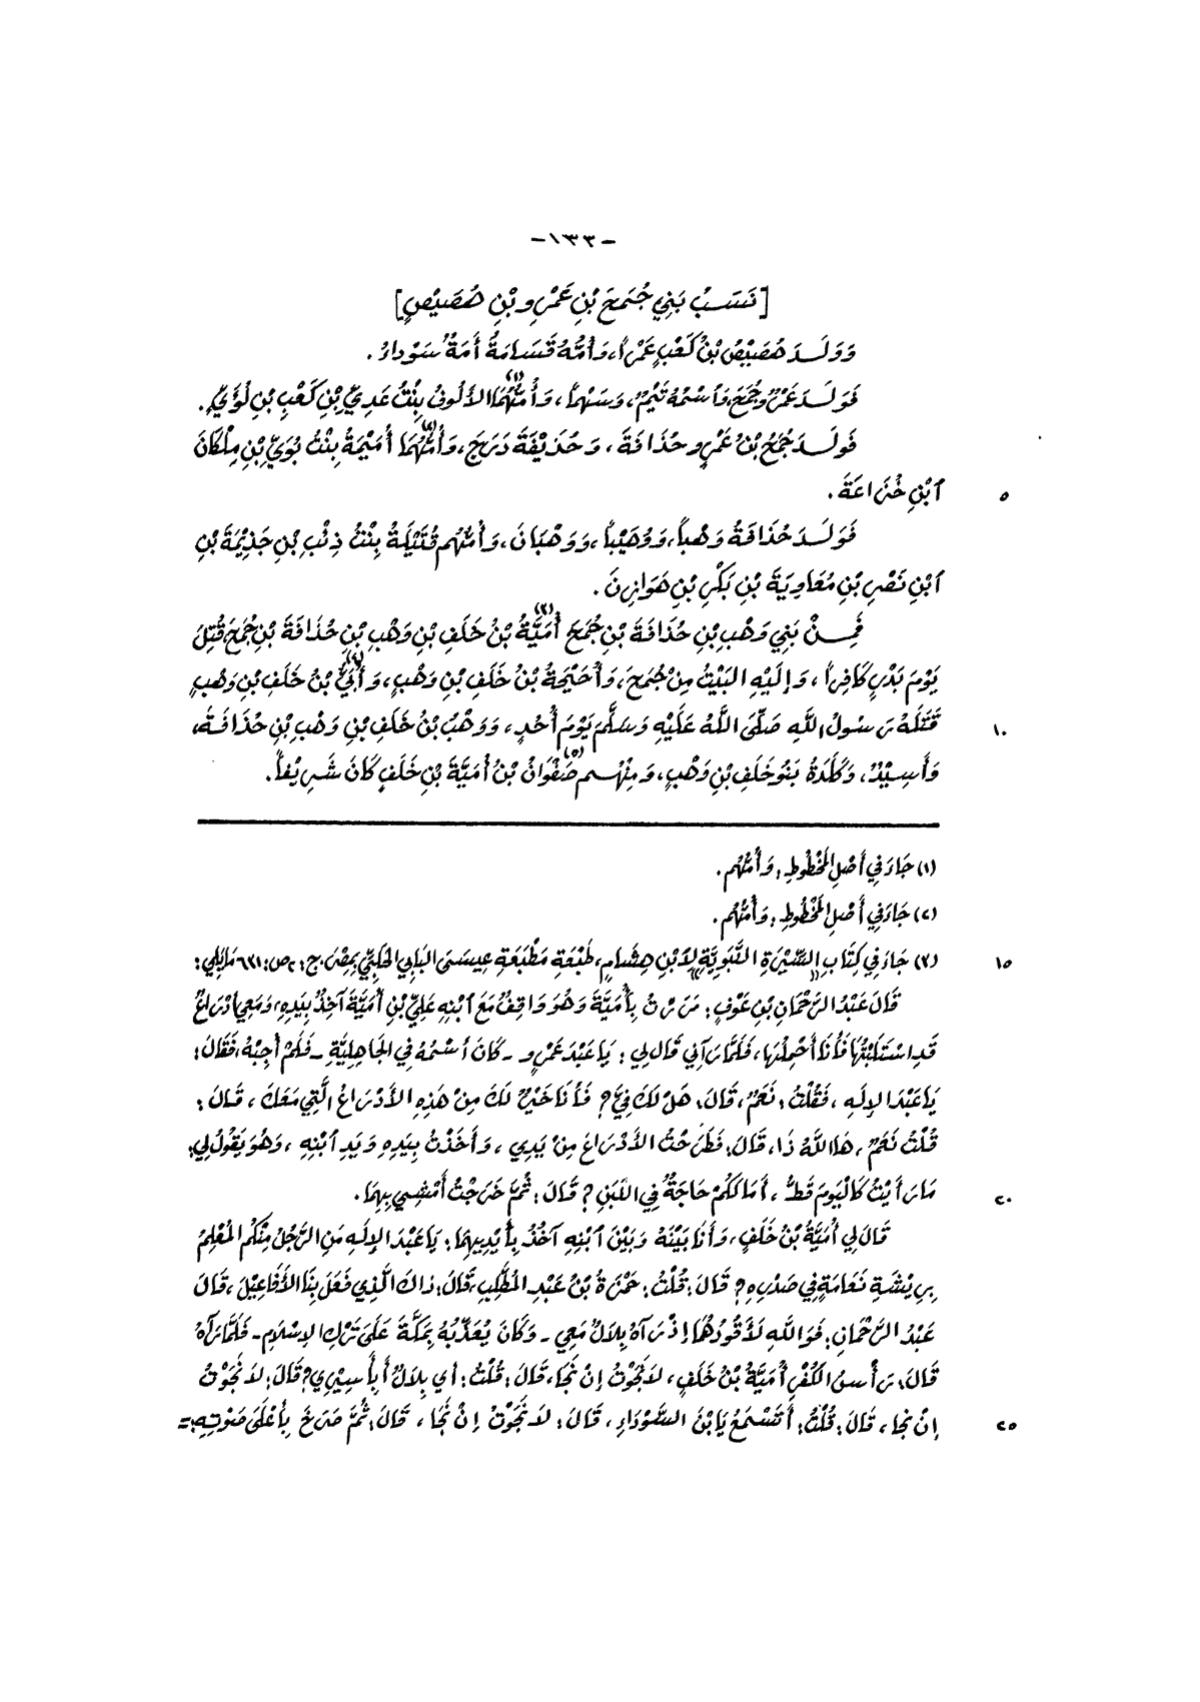 -١٣٣-
[نَسَبُ بَنِي جُمَحَ بْنِ عَمْرِو بْنِ هُصَيْصٍ]
وَوَلَدَ هُصَيْصُ بْنُ كَعْبٍ عَمْراً، وَأُمُّهُ قَسَامَةُ أَمَةٌ سَوْدَاءُ.
فَوَلَدَ عَمْرٌو جُمَحَ، وَٱسْمُهُ تَيْمٌ، وَسَهْماً، وَأُمُّهُمَا(١) الأَلُوفُ بِنْتُ عَدِيِّ بْنِ كَعْبِ بْنِ لُؤَيٍّ.
فَوَلَدَ جُمَحُ بْنُ عَمْرٍو حُذَافَةَ، وَحُذَيْفَةَ دَرَجَ، وَأُمُّهُمَا(٢) أُمَيْمَةُ بِنْتُ بُوَيِّ بْنِ مِلْكَانَ
٥ ٱبْنِ خُزَاعَةَ.
فَوَلَدَ حُذَافَةُ وَهْباً، وَوُهَيْباً، وَوَهْبَانَ، وَأُمُّهُم قُتَيْلَةُ بِنْتُ ذِئْبِ بْنِ جَذِيْمَةَ بْنِ
ٱبْنِ نَصْرِ بْنِ مُعَاوِيَةَ بْنِ بَكْرِ بْنِ هَوَازِنَ.
فَمِنْ بَنِي وَهْبِ بْنِ حُذَافَةَ بْنِ جُمَحَ أُمَيَّةُ(٣) بْنُ خَلَفِ بْنِ وَهْبِ بْنِ حُذَافَةَ بْنِ جُمَحَ، قُتِلَ
يَوْمَ بَدْرٍ كَافِراً، وَإِلَيْهِ البَيْتُ مِنْ جُمَحَ، وَأُحَيْحَةُ بْنُ خَلَفِ بْنِ وَهْبٍ، وَأُبَيُّ(٤) بْنُ خَلَفِ بْنِ وَهْبٍ
١٠ قَتَلَهُ رَسُولُ اللَّهِ صَلَّى اللَّهُ عَلَيْهِ وَسَلَّمَ يَوْمَ أُحُدٍ، وَوَهْبُ بْنُ خَلَفِ بْنِ وَهْبِ بْنِ حُذَافَةَ،
وَأَسِيْدٌ، وَكَلَدَةُ بَنُو خَلَفِ بْنِ وَهْبٍ، وَمِنْهُم صَفْوَانُ(٥) بْنُ أُمَيَّةَ بْنِ خَلَفٍ كَانَ شَرِيْفاً.
(١) جَاءَ فِي أَصْلِ المَخْطُوطِ: وَأُمُّهُم.
(٢) جَاءَ فِي أَصْلِ المَخْطُوطِ: وَأُمُّهُم.
١٥ (٣) جَاءَ فِي كِتَابِ السِّيْرَةِ النَّبَوِيَّةِ لِابْنِ هِشَامٍ، طَبْعَةِ مَطْبَعَةِ عِيسَى البَابِي الحَلَبِيِّ بِمِصْرَ، ج: ٢ ص: ٦٣١ مَايلِي:
قَالَ عَبْدُ الرَّحْمَانِ بْنِ عَوْفٍ: مَرَرْتُ بِأُمَيَّةَ وَهُوَ وَاقِفٌ مَعَ ٱبْنِهِ عَلِيِّ بْنِ أُمَيَّةَ آخِذٌ بِيَدِهِ، وَمَعِي أَدْرَاعٌ
قَدِ اسْتَلَبْتُهَا فَأَنَا أَحْمِلُهَا، فَلَمَّا رَآنِي قَالَ لِي: يَا عَبْدَ عَمْرٍو - كَانَ ٱسْمُهُ فِي الجَاهِلِيَّةِ - فَلَمْ أُجِبْهُ، فَقَالَ:
يَا عَبْدَ الإِلَهِ، فَقُلْتُ: نَعَمْ، قَالَ: هَلْ لَكَ فِيَّ؟ فَأَنَا خَيْرٌ لَكَ مِنْ هَذِهِ الأَدْرَاعِ الَّتِي مَعَكَ، قَالَ:
قُلْتُ نَعَمْ، هَا اللَّهُ ذَا، قَالَ: فَطَرَحْتُ الأَدْرَاعَ مِنْ يَدِي، وَأَخَذْتُ بِيَدِهِ وَيَدِ ٱبْنِهِ، وَهُوَ يَقُولُ لِي:
٢٠ مَا رَأَيْتُ كَاليَوْمِ قَطُّ، أَمَا لَكُمْ حَاجَةٌ فِي اللَّبَنِ؟ قَالَ: ثُمَّ خَرَجْتُ أَمْشِي بِهِمَا.
قَالَ لِي أُمَيَّةُ بْنُ خَلَفٍ، وَأَنَا بَيْنَهُ وَبَيْنَ ٱبْنِهِ آخُذُ بِأَيْدِيهِمَا: يَا عَبْدَ الإِلَهِ مَنِ الرَّجُلُ مِنْكُمُ المُعْلِمُ
بِرِيْشَةِ نَعَامَةٍ فِي صَدْرِهِ؟ قَالَ: قُلْتُ: حَمْزَةُ بْنُ عَبْدِ المُطَّلِبِ، قَالَ: ذَاكَ الَّذِي فَعَلَ بِنَا الأَفَاعِيْلَ، قَالَ
عَبْدُ الرَّحْمَانِ: فَوَاللَّهِ لَأَقُودُهُمَا إِذْ رَآهُ بِلَالٌ مَعِي - وَكَانَ يُعَذِّبُهُ بِمَكَّةَ عَلَى تَرْكِ الإِسْلَامِ - فَلَمَّا رَآهُ
قَالَ: رَأْسُ الكُفْرِ أُمَيَّةُ بْنُ خَلَفٍ، لَا نَجَوْتُ إِنْ نَجَا، قَالَ: قُلْتُ: أَي بِلَالٌ أَبِأَسِيْرِي؟ قَالَ: لَا نَجَوْتُ
٢٥ إِنْ نَجَا، قَالَ: قُلْتُ: أَتَسْمَعُ يَا بْنَ السَّوْدَاءِ، قَالَ: لَا نَجَوْتُ إِنْ نَجَا، قَالَ: ثُمَّ صَرَخَ بِأَعْلَى صَوْتِهِ: =